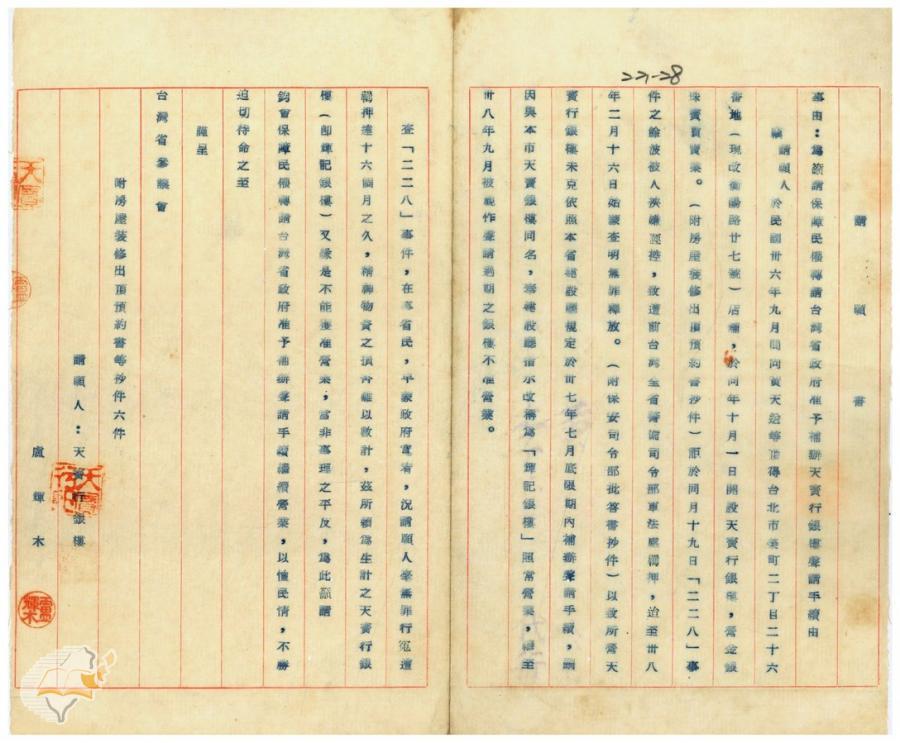 221-28
請願書
事由:為籲請保障民權轉請台灣省政府准予補辦天寶行銀樓聲請手續由
請願人於民國卅六年九月間向黃天 等頂得台北市榮町二丁目二十六
番地(現改衡陽路廿七號)店舖,於同年十月一日開設天寶行銀樓,營金銀
珠寶買賣業。(附房屋裝修出頂預約書抄件)詎於同月十九日「二二八」事
件之餘波被人挾嫌誣控,致遭前台灣全省警備司令部軍法處羈押,迨至卅八
年二月十六日始蒙查明無罪釋放。(附保安司令部批答書抄件)以致所營天
寶行銀樓未克依照本省建設廳規定於卅七年七月底限期內補辦聲請手續,嗣
因與本市天寶銀樓同名,蒙建設廳指示改稱為「輝記銀樓」照常營業,繼至
卅八年九月被視作聲請過期之銀樓不准營業。
查「二二八」事件,在本省民,早蒙政府寬宥,況請願人毫無罪行冤遭
羈押達十六個月之久,精神物資之損害難以數計,茲所賴為生計之天寶行銀
樓(即輝記銀樓)又緣是不能獲准營業,當非事理之平反,為此籲請
鈞會保障民權轉請台灣省政府准予補辦聲請手續繼續營業,以恤民情,不勝
迫切待命之至
謹呈
台灣省參議會
附房屋裝修出頂預約書等抄件六件
請願人:天寶行銀樓
盧輝木